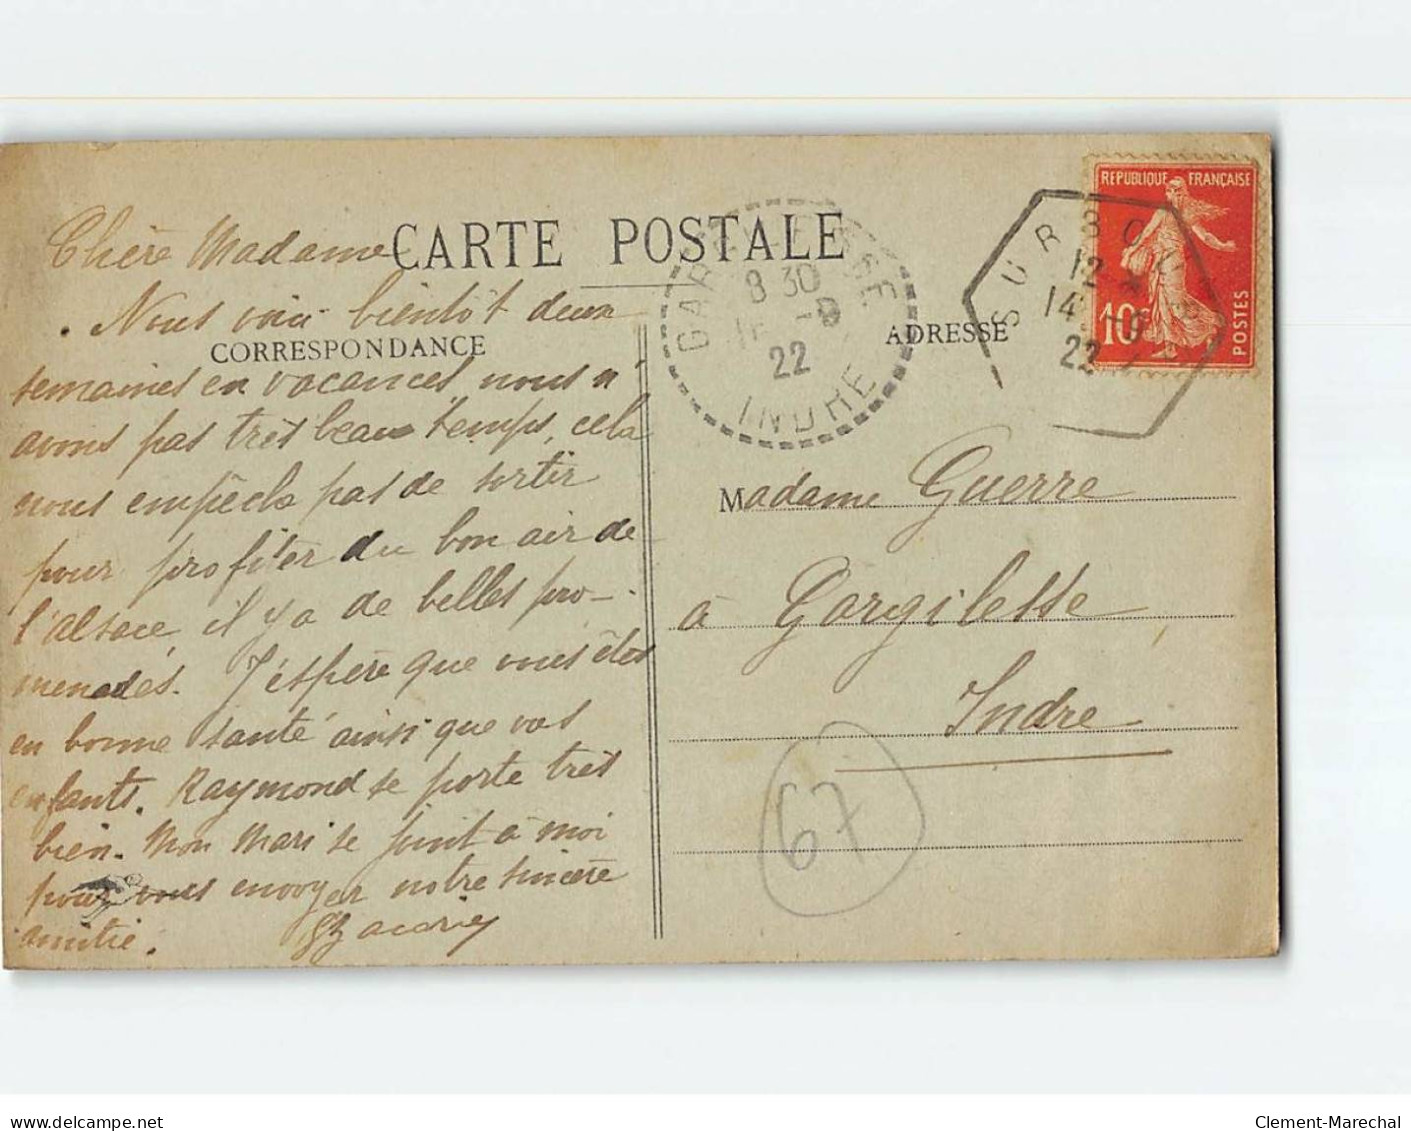 CARTE POSTALE
CORRESPONDANCE
ADRESSE
Chère Madame
Nous voici bientôt deux
semaines en vacances, nous n'
avons pas très beau temps, cela
nous empêche pas de sortir
pour profiter du bon air de
l'alsace, il y a de belles pro-
menades. J'espère que vous êtes
en bonne santé ainsi que vos
enfants. Raymond se porte très
bien. Mon Mari se joint à moi
pour vous envoyer notre sincère
amitié.
GARGILESSE
8 30
22
INDRE
SURBOURG
12
14 -8
22
REPUBLIQUE FRANÇAISE
10
POSTES
Madame Guerre
à Gargilesse
Indre
67
www.delcampe.net
Clement-Marechal